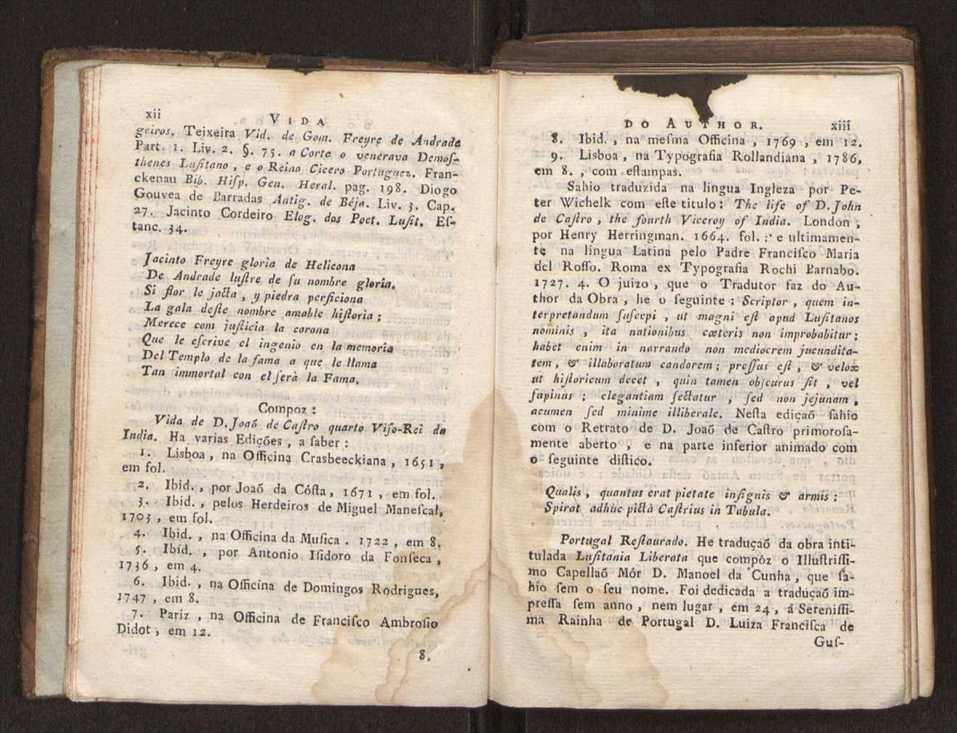 xii VIDA
geiros. Teixeira Vid. de Gom. Freyre de Andrade
Part. 1. Liv. 2. §. 75. a Corte o venerava Demoſ-
thenes Luſitano, e o Reino Cicero Portuguez. Fran-
ckenau Bib. Hiſp. Gen. Heral. pag. 198. Diogo
Gouvea de Barradas Antig. de Béja. Liv. 3. Cap.
27. Jacinto Cordeiro Elog. dos Poet. Luſit. Eſ-
tanc. 34.
Jacinto Freyre gloria de Helicona
De Andrade luſtre de ſu nombre gloria.
Si flor le jacta, y piedra perficiona
La gala deſte nombre amable hiſtoria;
Merece com juſticia la corona
Que le eſcrive el ingenio en la memoria
Del Templo de la fama a que le llama
Tan immortal con el ſerà la Fama.
Compoz:
Vida de D. Joaõ de Caſtro quarto Viſo-Rei da
India. Ha varias Edições, a ſaber:
1. Lisboa, na Officina Crasbeeckiana, 1651,
em fol.
2. Ibid., por Joaõ da Cóſta, 1671, em fol.
3. Ibid., pelos Herdeiros de Miguel Maneſcal,
1703, em fol.
4. Ibid., na Officina da Muſica. 1722, em 8.
5. Ibid., por Antonio Iſidoro da Fonſeca,
1736, em 4.
6. Ibid., na Officina de Domingos Rodrigues,
1747, em 8.
7. Pariz, na Officina de Franciſco Ambroſio
Didot, em 12.
8.
DO AUTHOR. xiii
8. Ibid., na meſma Officina, 1769, em 12.
9. Lisboa, na Typografia Rollandiana, 1786,
em 8., com eſtampas.
Sahio traduzida na lingua Ingleza por Pe-
ter Wichelk com eſte titulo: The life of D. John
de Caſtro, the fourth Viceroy of India. London,
por Henry Herringman. 1664. fol.: e ultimamen-
te na lingua Latina pelo Padre Franciſco Maria
del Roſſo. Roma ex Typografia Rochi Barnabo.
1727. 4. O juizo, que o Tradutor faz do Au-
thor da Obra, he o ſeguinte: Scriptor, quem in-
terpretandum ſuſcepi, ut magni eſt apud Luſitanos
nominis, ita nationibus cæteris non improbabitur:
habet enim in narrando non mediocrem jucundita-
tem, & illaboratum candorem; preſſus eſt, & velox
ut hiſtoricum decet, quin tamen obſcurus ſit, vel
ſupinus; elegantiam ſectatur, ſed non jejunam,
acumen ſed minime illiberale. Neſta ediçaõ ſahio
com o Retrato de D. Joaõ de Caſtro primoroſa-
mente aberto, e na parte inferior animado com
o ſeguinte diſtico.
Qualis, quantus erat pietate inſignis & armis:
Spirat adhùc pictâ Caſtrius in Tabula.
Portugal Reſtaurado. He traduçaõ da obra inti-
tulada Luſitania Liberata que compôz o Illuſtriſſi-
mo Capellaõ Mór D. Manoel da Cunha, que ſa-
hio ſem o ſeu nome. Foi dedicada a traduçaõ im-
preſſa ſem anno, nem lugar, em 24, á Sereniſſi-
ma Rainha de Portugal D. Luiza Franciſca de
Guſ-